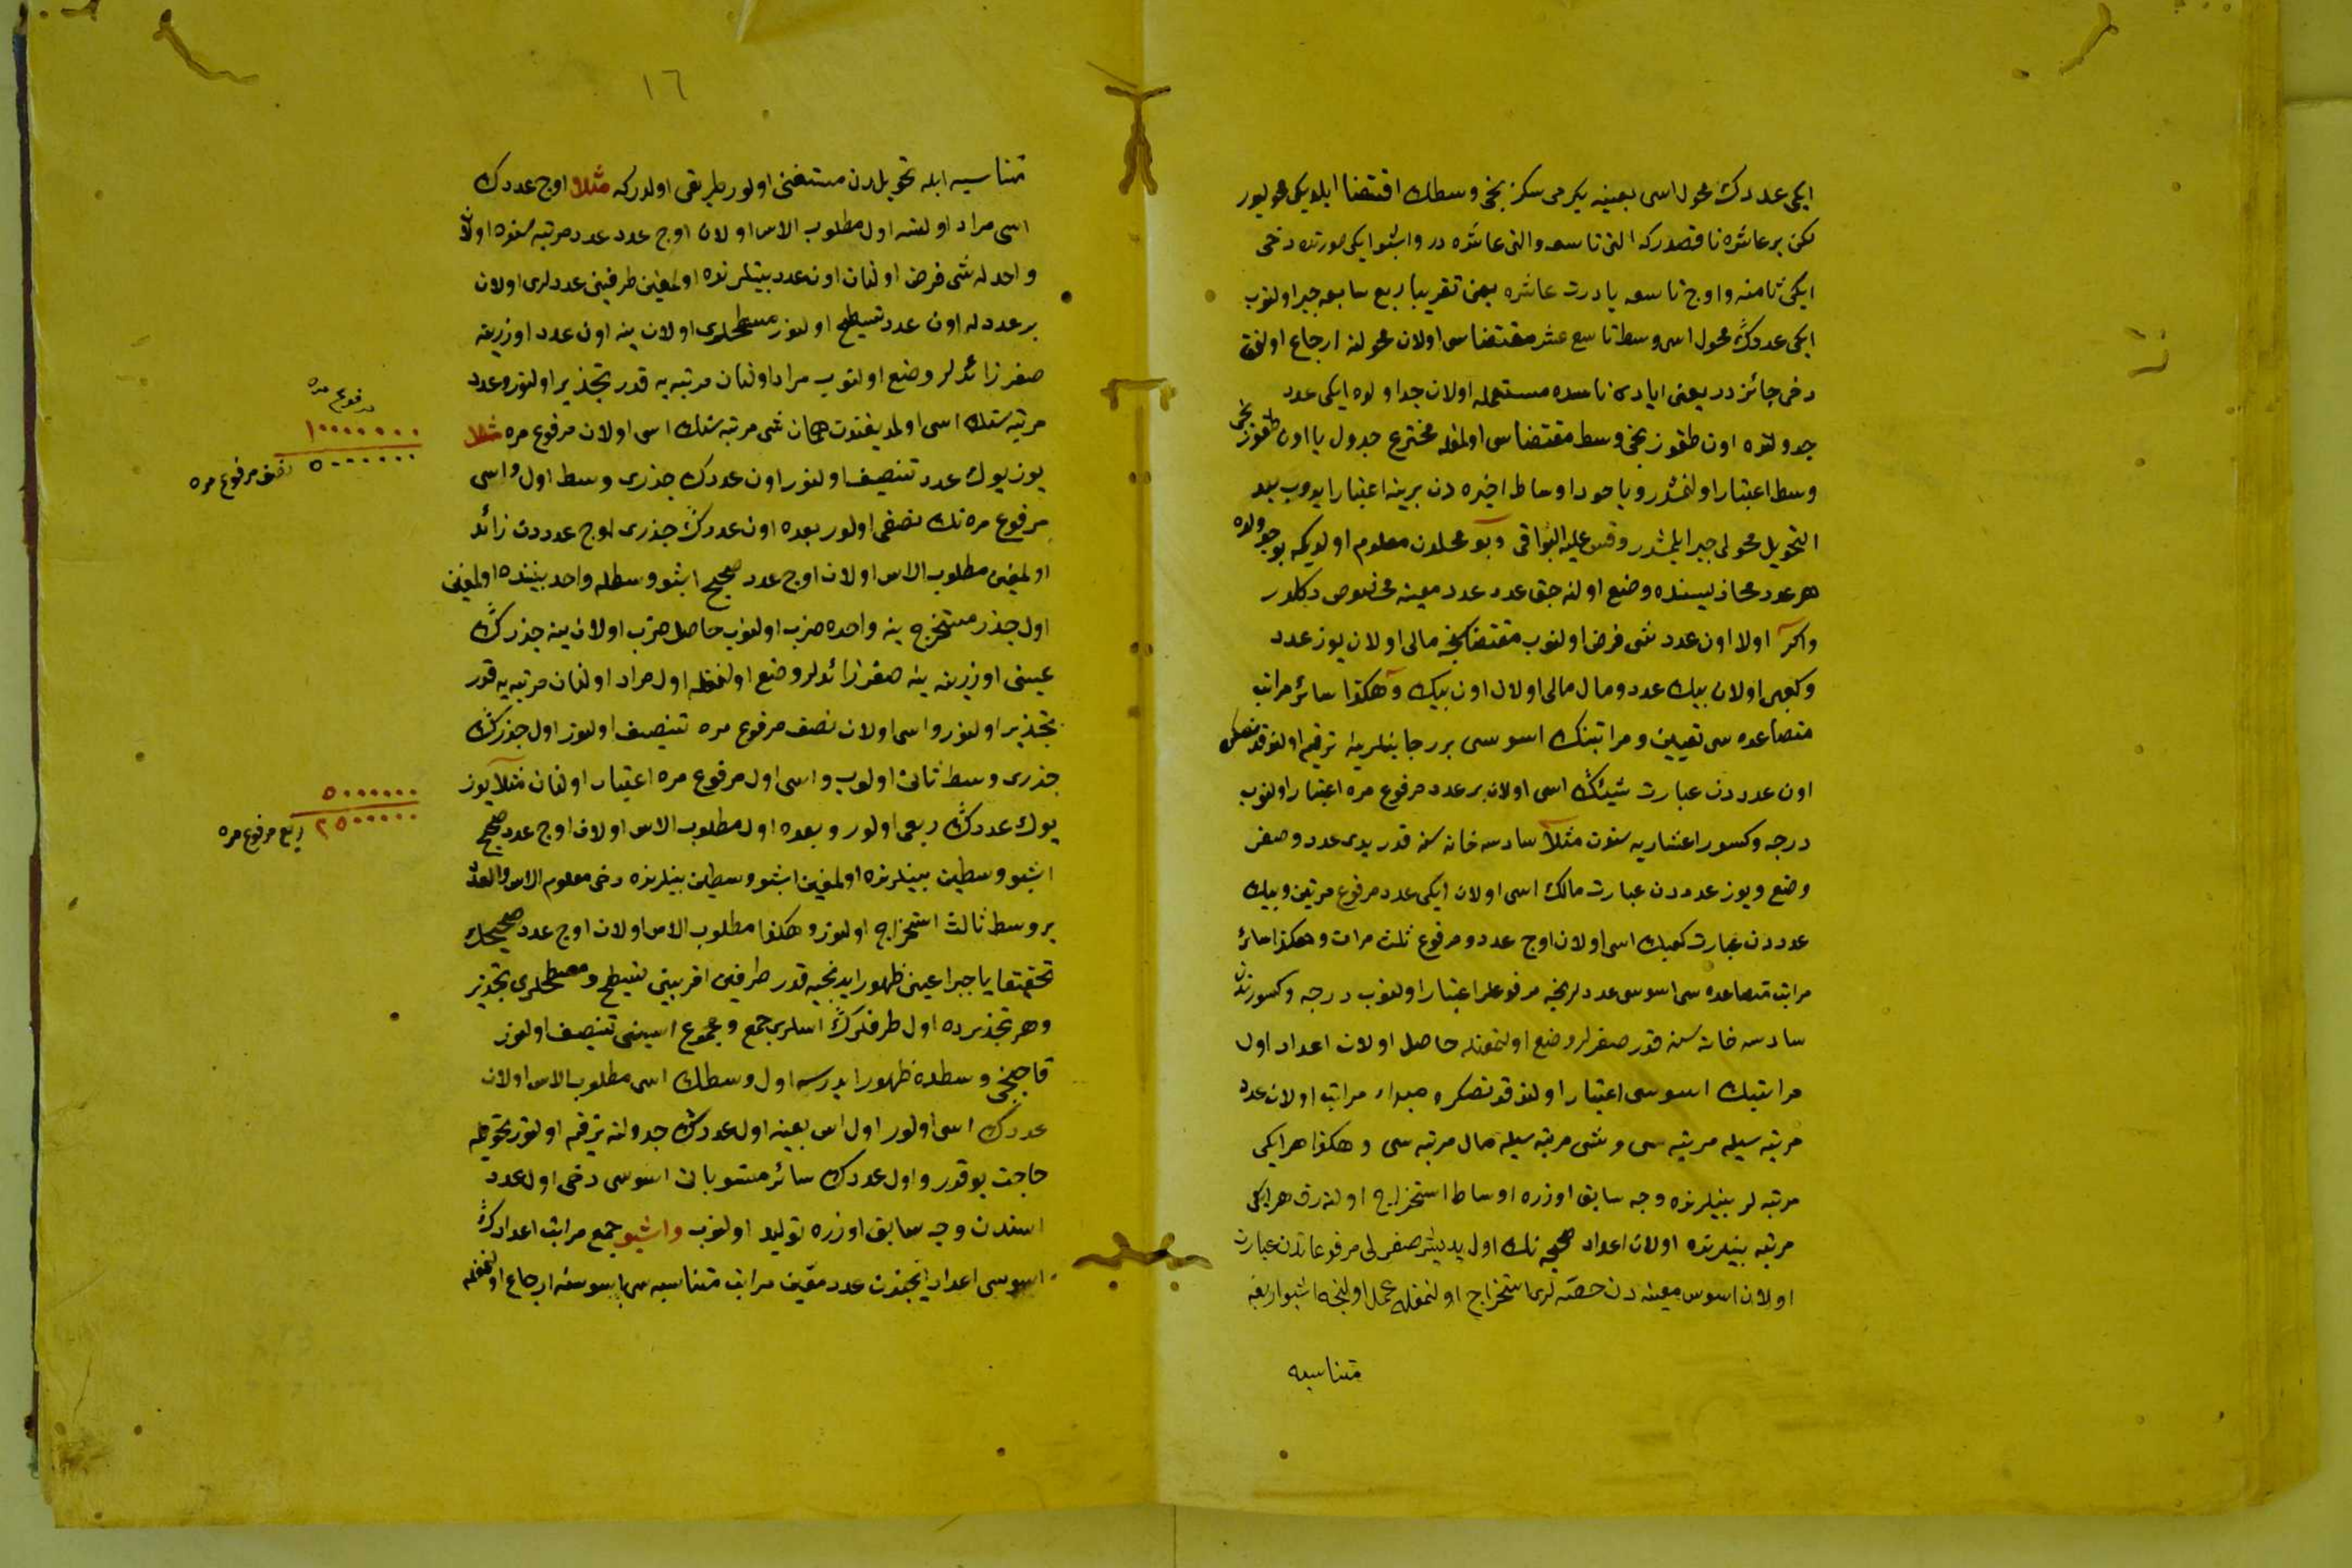 ایکی عددك محول اسی بعینه یکرمی سکزنجی وسطك اقتضا ایلدیکی محولیور
لکن بر عاشره ناقصدرکه التی تاسعه والتی عاشره در واشبو ایکی صورتده دخی
ایکی ثامنه واوچ تاسعه یا درت عاشره یعنی تقریبا ربع سابعه جبر اولنوب
ایکی عددك محول اسی وسط تاسع عشر مقتضاسی اولان محولنه ارجاع اولنمق
دخی جائزدر یعنی ایادی ناسده مستعمله اولان جداولده ایکی عدد
جدولنده اون طقوزنجی وسط مقتضاسی اولمغله مخترع جدول یا اون طقوزنجی
وسط اعتبار اولنمشدر ویاخود اوساط اخیره دن برینه اعتبار ایدوب بعد
التحویل محولی جبر ایلمشدر وقس علیه البواقی وبو محلدن معلوم اولدیکه بو جدولده
هر عدد محاذیسنده وضع اولنه جق عدد عدد معینه مخصوص دکلدر
واکر اولا اون عدد شی فرض اولنوب مقتضاسنجه مالی اولان یوز عدد
وکعبی اولان بیك عدد ومال مالی اولان اون بیك وهکذا سائر مراتب
متصاعده سی تعیین ومراتبنك اسوسی بررجا بنلرینه ترقیم اولندقدنصکره
اون عدددن عبارت شیئك اسی اولان بر عدد مرفوع مره اعتبار اولنوب
درجه وکسور اعشاریه سنون مثلا سادسه خانه سنه قدر یدی عدد وصفر
وضع ویوز عدددن عبارت مالك اسی اولان ایکی عدد مرفوع مرتین وبیك
عدددن عبارت کعبك اسی اولان اوچ عدد ومرفوع ثلث مرات وهکذا سائر
مراتب متصاعده سی اسوسی عددلرنجه مرفوعلر اعتبار اولنوب درجه وکسورندن
سادسه خانه سنه قدر صفرلر وضع اولنمغله حاصل اولان اعداد اول
مراتبك اسوسی اعتبار اولندقدنصکره مبداء مراتب اولان عدد
مرتبه سیله مرتبه سی وشی مرتبه سیله مال مرتبه سی وهکذا هر ایکی
مرتبه لر بینلرنده وجه سابق اوزره اوساط استخراج اولنه رق هر ایکی
مرتبه بینلرنده اولان اعداد صحیحه نك اول یدیشر صفرلی مرفوعاتدن عبارت
اولان اسوس معینه دن حصه لری استخراج اولنمغله عمل اولنجه اشبو اربعه
متناسبه
١٦
متناسبه ایله تحویلدن مستغنی اولور طریقی اولدرکه مثلا اوچ عددك
اسی مراد اولنسه اول مطلوب الاس اولان اوچ عدد عدد مرتبه سنده اولان
واحد له شی فرض اولنان اون عدد بینلرنده اولمغین طرفینی عددلری اولان
بر عدد له اون عدد تسطیح اولنور مسطحلری اولان ینه اون عدد اوزرینه
صفر زائدلر وضع اولنوب مراد اولنان مرتبه یه قدر تجذیر اولنور وعدد
مرتبه سنك اسی اولمدیغندن همان شی مرتبه سنك اسی اولان مرفوع مره مثلا
یوز یوك عدد تنصیف اولنور اون عددك جذری وسط اول واسی
مرفوع مره نك نصفی اولور بعده اون عددك جذری اوچ عدددن زائد
اولمغین مطلوب الاس اولان اوچ عدد صحیح اشبو وسطله واحد بیننده اولمغین
اول جذر مستخرج ینه واحده ضرب اولنوب حاصل ضرب اولان ینه جذرك
عینی اوزرینه ینه صفر زائدلر وضع اولنمغله اول مراد اولنان مرتبه یه قدر
تجذیر اولنور واسی اولان نصف مرفوع مره تنصیف اولنور اول جذرك
جذری وسط ثانی اولوب واسی اول مرفوع مره اعتبار اولنان مثلا یوز
یوك عددك ربعی اولور وبعده اول مطلوب الاس اولان اوچ عدد صحیح
اشبو وسطین بینلرنده اولمغین اشبو وسطین بینلرنده دخی معلوم الاس والعدد
بر وسط ثالث استخراج اولنور وهکذا مطلوب الاس اولان اوچ عدد صحیحك
تحقیقا یا جبرا عینی ظهور ایدنجیه قدر طرفین اقربینی تسطیح ومسطحلری تجذیر
وهر تجذیرده اول طرفلرك اسلری جمع ومجموع اسینی تنصیف اولنور
قاچنجی وسطده ظهور ایدرسه اول وسطك اسی مطلوب الاس اولان
عددك اسی اولور اول اس بعینه اول عددك جدولنه ترقیم اولنور تحویله
حاجت یوقدر واول عددك سائر منسوباتی اسوسی دخی اول عدد
اسندن وجه سابق اوزره تولید اولنوب واشبو جمع مراتب اعدادك
اسوسی اعداد ایجندن عدد معین مراتب متناسبه سی اسوسنه ارجاع اولنمغله
مرفوع مره
١٠٠٠٠٠٠٠
٥٠٠٠٠٠٠ نصف مرفوع مره
٥٠٠٠٠٠٠
٢٥٠٠٠٠٠ ربع مرفوع مره